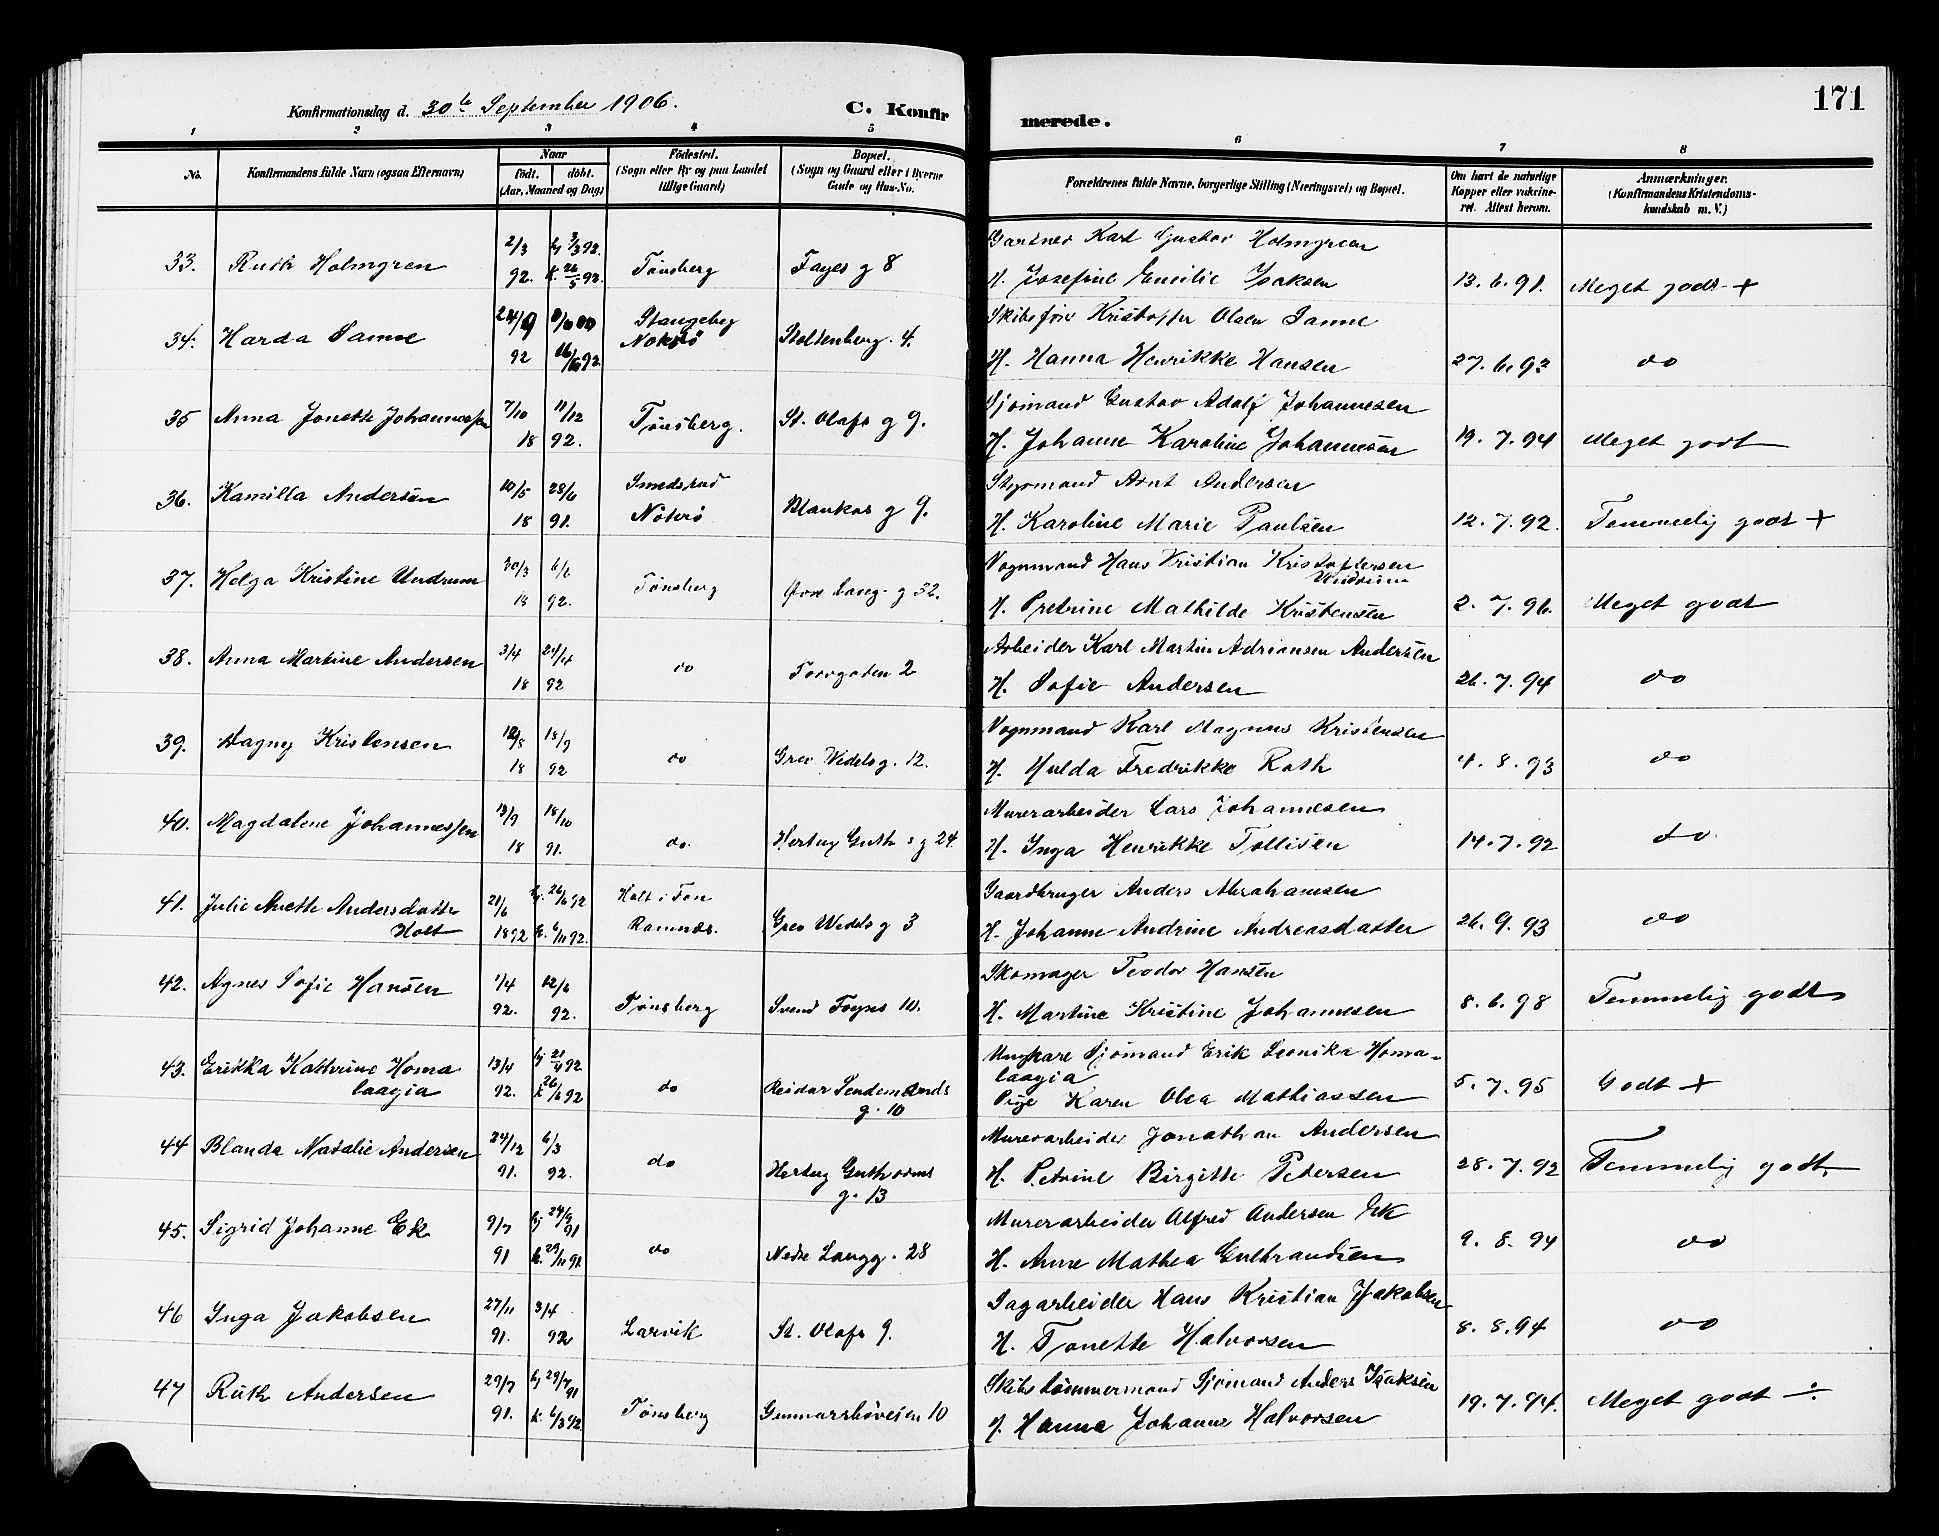 171
Konfirmationsdag d. 30te September 1906.
C. Konfirmerede.
1 2 3 4 5 6 7 8
No.
Konfirmandens fulde Navn (ogsaa Efternavn)
Naar
födt. döbt.
(Aar, Maaned og Dag)
Födested.
(Sogn eller By og paa Landet
tillige Gaard)
Bopæl.
(Sogn og Gaard eller i Byerne
Gade og Hus-No.
Forældrenes fulde Navne, borgerlige Stilling (Næringsvei) og Bopæl.
Om havt de naturlige
Kopper eller vakcine-
ret. Attest herom.
Anmærkninger.
(Konfirmandens Kristendoms-
kundskab m. V.)
33. Ruth Holmgren 2/3 92. hj 3/3 92. k. 22/5 92. Tønsberg Foyes g 8
Gartner Karl Gustav Holmgren
H. Josefine Emilie Isaksen 13. 6. 91. Meget godt +
34. Harda Sanne 24/9 92 16/10 92. Stangeby Nøtterø Stoltenberg. 4.
Skibsfør Kristoffer Olsen Sanne
H. Hanna Henrikke Hansen 27. 6. 93 do
35 Anna Jonette Johannessen 7/10 11/12 18 92. Tønsberg. St. Olafs g 9.
Sjømand Gustav Adolf Johannesen
H. Johanne Karoline Johannesen 19. 7. 94 Meget godt
36. Kamilla Andersen 10/5 28/6 18 91. Smedsrud Nøterø Blankes g 9.
Styrmand Arnt Andersen
H. Karoline Marie Paulsen 12. 7. 92. Temmelig godt +
37. Helga Kristine Undrum 30/3 6/6 18 92. Tønsberg Øvre Lang. g 32.
Vognmand Hans Kristian Kristoffersen
Undrum
H. Petrine Mathilde Kristensen 2. 7. 96. Meget godt
38. Anna Martine Andersen 3/4 24/4 18 92 do Torvgaten 2
Arbeider Karl Martin Adriansen Andersen
H. Sofie Andersen 26. 7. 94 do
39. Dagny Kristensen 12/8 18/9 18 92 do Grev Wedels g. 12.
Vognmand Karl Magnus Kristensen
H. Hulda Fredrikke Roth 4. 8. 93 do
40. Magdalene Johannessen 13/9 18/10 18 91. do. Hertug Guth s g 24.
Murerarbeider Lars Johannesen
H. Inga Henrikke Tollisen 14. 7. 92 do
41. Julie Anette Andersdatter
Holt 21/6 1892 hj. 26/6 92 k. 6/11 92. Holt i Fon Ramnæs. Grev Wedels g 3
Gaardbruger Anders Abrahamsen
H. Johanne Andrine Andreasdatter 26. 9. 93 do
42. Agnes Sofie Hansen 1/4 92. 12/6 92. Tønsberg Svend Foyns 10.
Skomager Teodor Hansen
H. Martine Kristine Johannesen 8. 6. 98 Temmelig godt
43. Erikka Kathrine Homa
laagia 13/4 92. hj 21/4 92 k 26/6 92 do Reidar Sendemands
g. 10
Ungkare Sjømand Erik Leonika Homa-
laagia
Pige Karen Olea Mathiassen 5. 7. 95 Godt +
44 Blanda Natalie Andersen 24/12 91. 6/3 92. do Hertug Guthorms
g. 13
Murerarbeider Jonathan Andersen
H. Petrine Birgitte Petersen 28. 7. 92 Temmelig godt
45. Sigrid Johanne Ek 9/7 91 hj 24/9 91 k. 29/11 91 do Nedre Langg. 28
Murerarbeider Alfred Andersen Ek
H. Anne Mathea Gulbrandsen 9. 8. 94 do
46 Inga Jakobsen 27/11 91. 3/4 92 Larvik St. Olafs 9.
Sagarbeider Hans Kristian Jakobsen
H. Tonette Halvorsen 8. 8. 94 do
47 Ruth Andersen 29/7 91. hj 29/7 91 k. 6/3 92. Tønsberg Gunnarsbøveien 10
Skibstømmermand Sjømand Anders Isaksen
H. Hanna Johanne Halvorsen 19. 7. 94. Meget godt ÷